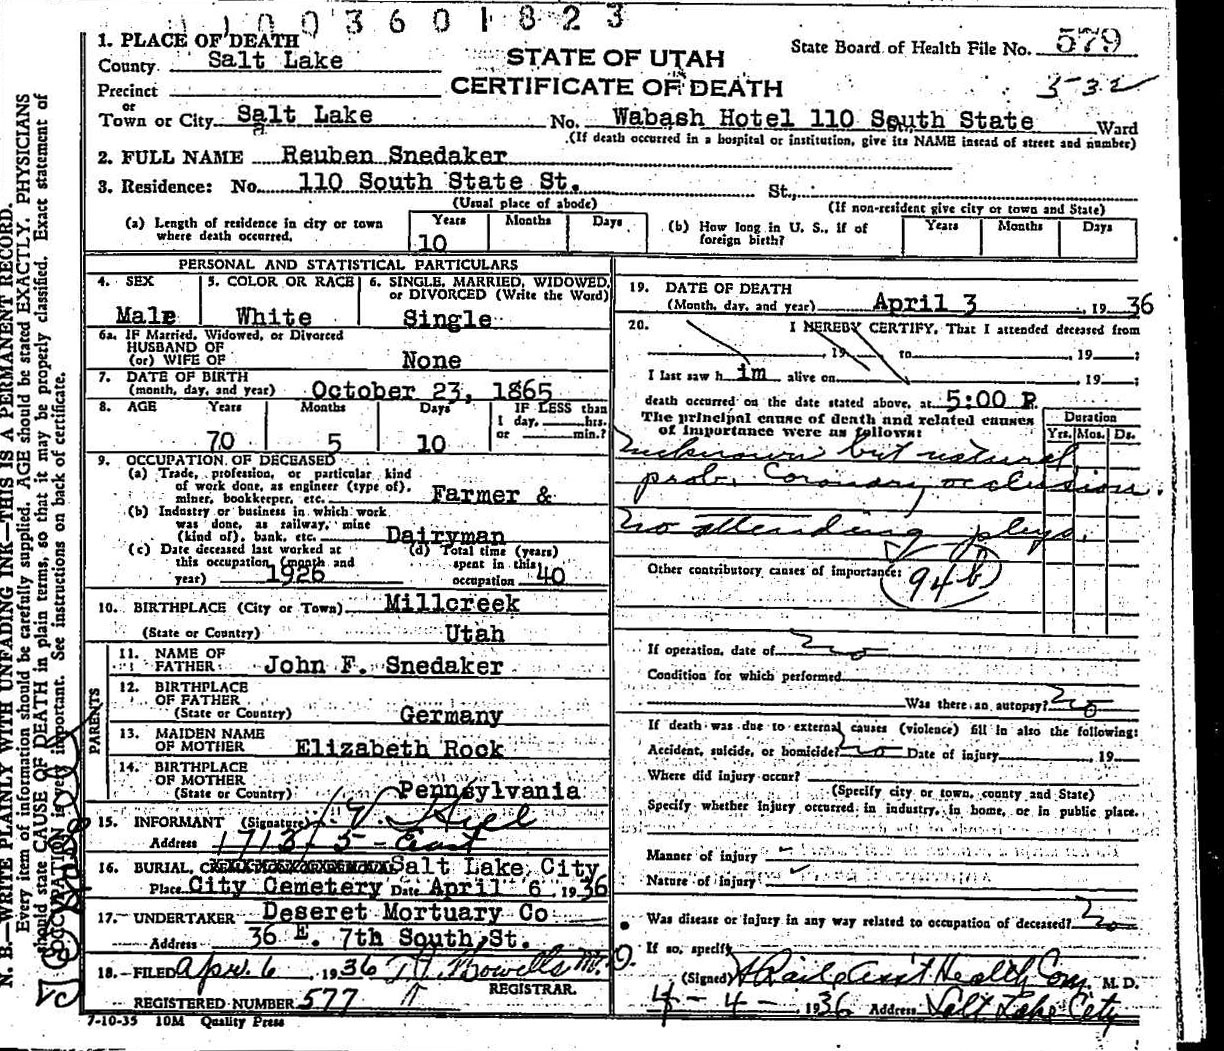 1003601823
1. PLACE OF DEATH
County Salt Lake
STATE OF UTAH
CERTIFICATE OF DEATH
State Board of Health File No. 579
532
Precinct
or
Town or City Salt Lake No. Wabash Hotel 110 South State Ward
(If death occurred in a hospital or institution, give its NAME instead of street and number)
2. FULL NAME Reuben Snedaker
3. Residence: No. 110 South State St. St.,
(Usual place of abode) (If non-resident give city or town and State)
(a) Length of residence in city or town where death occurred. Years 10 Months Days
(b) How long in U. S., if of foreign birth? Years Months Days
PERSONAL AND STATISTICAL PARTICULARS
4. SEX Male
5. COLOR OR RACE White
6. SINGLE, MARRIED, WIDOWED, or DIVORCED (Write the Word) Single
6a. If Married, Widowed, or Divorced
HUSBAND OF
(or) WIFE OF None
7. DATE OF BIRTH
(month, day, and year) October 23, 1865
8. AGE Years 70 Months 5 Days 10 IF LESS than
1 day, hrs.
or min.?
9. OCCUPATION OF DECEASED
(a) Trade, profession, or particular kind
of work done, as engineer (type of),
miner, bookkeeper, etc. Farmer &
(b) Industry or business in which work
was done, as railway, mine
(kind of), bank, etc. Dairyman
(c) Date deceased last worked at
this occupation (month and
year) 1926
(d) Total time (years)
spent in this
occupation 40
10. BIRTHPLACE (City or Town) Millcreek
(State or Country) Utah
PARENTS
11. NAME OF
FATHER John F. Snedaker
12. BIRTHPLACE
OF FATHER
(State or Country) Germany
13. MAIDEN NAME
OF MOTHER Elizabeth Rock
14. BIRTHPLACE
OF MOTHER
(State or Country) Pennsylvania
15. INFORMANT (Signature)
Address 1713 5 East
16. BURIAL, Salt Lake City
Place City Cemetery Date April 6 1936
17. UNDERTAKER Deseret Mortuary Co
Address 36 E. 7th South St.
18. FILED Apr. 6 1936
REGISTRAR.
REGISTERED NUMBER 577
7-10-35 10M Quality Press
19. DATE OF DEATH
(Month, day, and year) April 3, 1936
20. I HEREBY CERTIFY, That I attended deceased from
, 19 to , 19 ;
I last saw h im alive on , 19 ;
death occurred on the date stated above, at 5:00 P.
The principal cause of death and related causes
of importance were as follows:
Duration
Yrs. Mos. Ds.
Unknown but natural,
prob. Coronary occlusion.
No attending phys.
Other contributory causes of importance:
94b
If operation, date of No
Condition for which performed
Was there an autopsy? No
If death was due to external causes (violence) fill in also the following:
Accident, suicide, or homicide? No Date of injury , 19
Where did injury occur?
(Specify city or town, county and State)
Specify whether injury occurred in industry, in home, or in public place.
Manner of injury
Nature of injury
Was disease or injury in any way related to occupation of deceased? No
If so, specify
(Signed) Ass't Health Com M. D.
4-4-1936 Address Salt Lake City
N. B.—WRITE PLAINLY WITH UNFADING INK—THIS IS A PERMANENT RECORD.
Every item of information should be carefully supplied. AGE should be stated EXACTLY. PHYSICIANS
should state CAUSE OF DEATH in plain terms, so that it may be properly classified. Exact statement of
OCCUPATION is very important. See instructions on back of certificate.